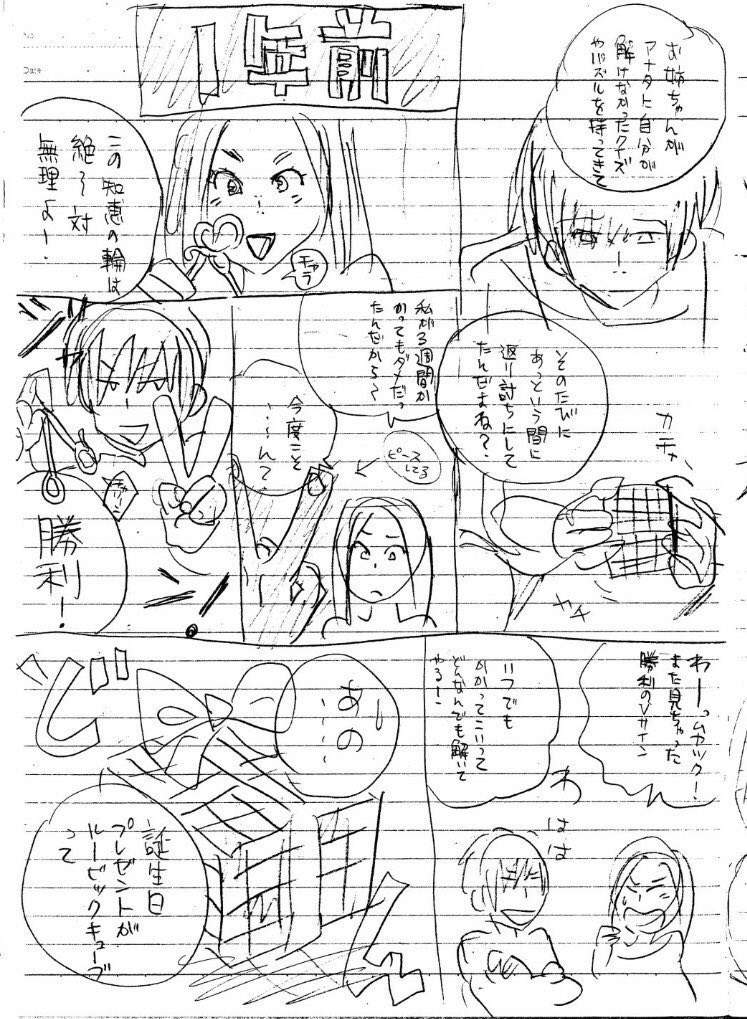 お姉ちゃんが
アナタに自分が
解けなかったクイズ
やパズルを持ってきて
1年前
この知恵の輪は
絶〜対
無理よー!
チャラ
そのたびに
あっという間に
返り討ちにして
たんだよね?
カチャ
カチ
私が3週間か
かってもダメだっ
たんだから〜
今度こそ
……んて
ピース
してる
チャリ
勝利!
わーっムカック!
また見ちゃった
勝利のVサイン
いつでも
かかってこいって
どんなんでも解いて
やるー!
わはは
あの……
じ
誕生日
プレゼントが
ルービックキューブ
って
Date